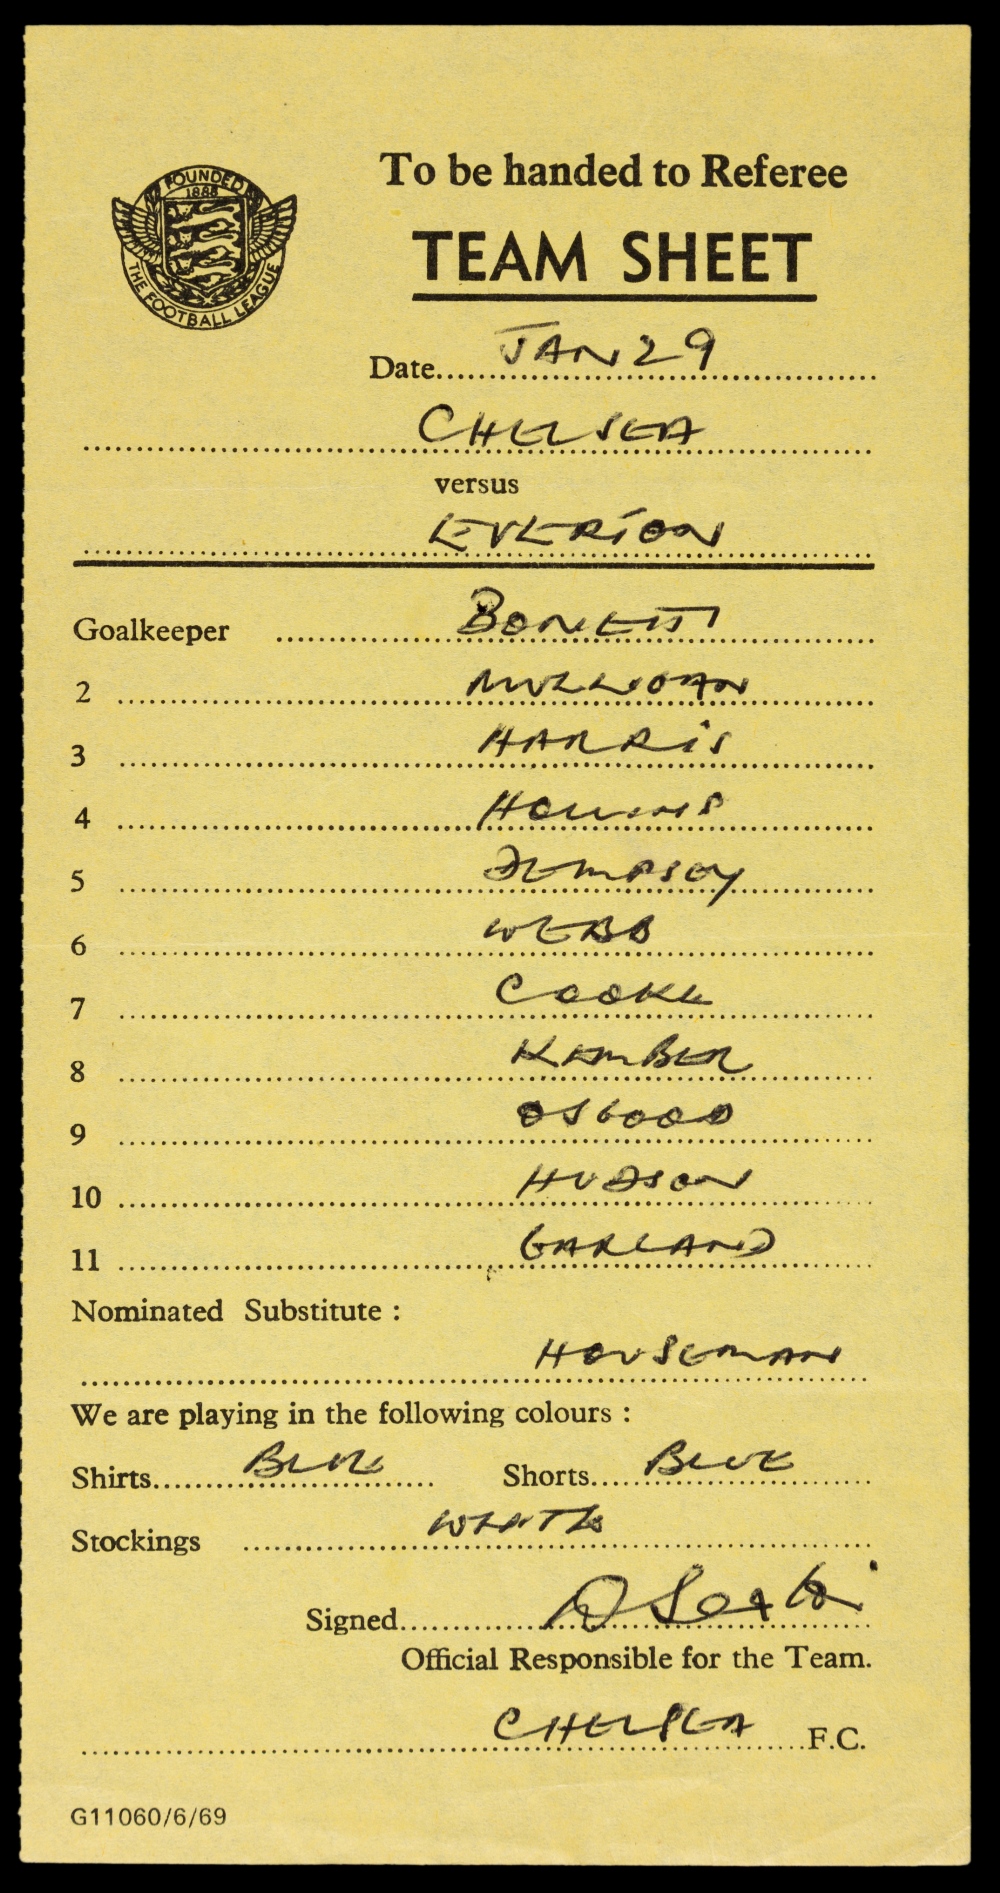 FOUNDED
1888
THE FOOTBALL LEAGUE
To be handed to Referee
TEAM SHEET
Date JAN 29
CHELSEA
versus
EVERTON
Goalkeeper BONETTI
2 MULLIGAN
3 HARRIS
4 HOLLINS
5 DEMPSEY
6 WEBB
7 COOKE
8 KEMBER
9 OSGOOD
10 HUDSON
11 GARLAND
Nominated Substitute :
HOUSEMAN
We are playing in the following colours :
Shirts BLUE Shorts BLUE
Stockings WHITE
Signed D Sexton
Official Responsible for the Team.
CHELSEA F.C.
G11060/6/69